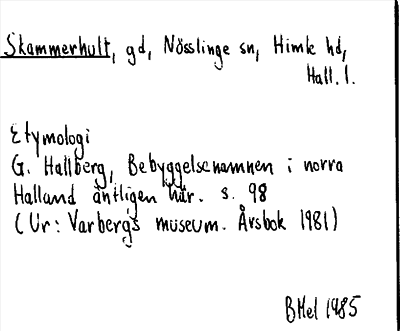 Skammerhult, gd, Nösslinge sn, Himle hd,
Hall. l.
Etymologi
G. Hallberg, Bebyggelsenamnen i norra
Halland äntligen här. s. 98
(Ur: Varbergs museum. Årsbok 1981)
BMel 1985